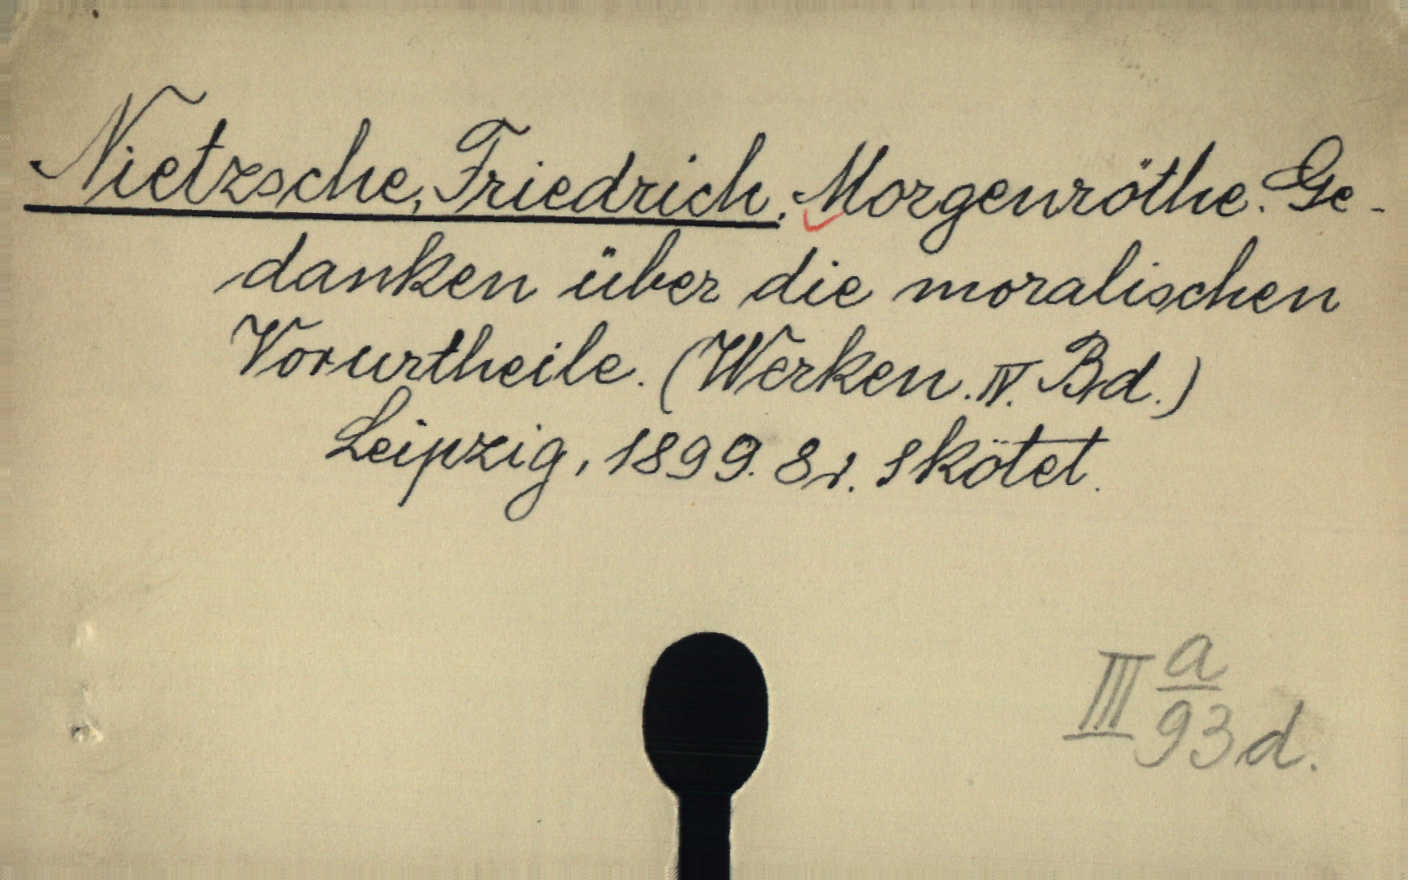 Nietzsche, Friedrich. Morgenröthe. Ge-
danken über die moralischen
Vorurtheile. (Werken. IV. Bd.)
Leipzig, 1899. 8r. 1 kötet.
III a/93d.